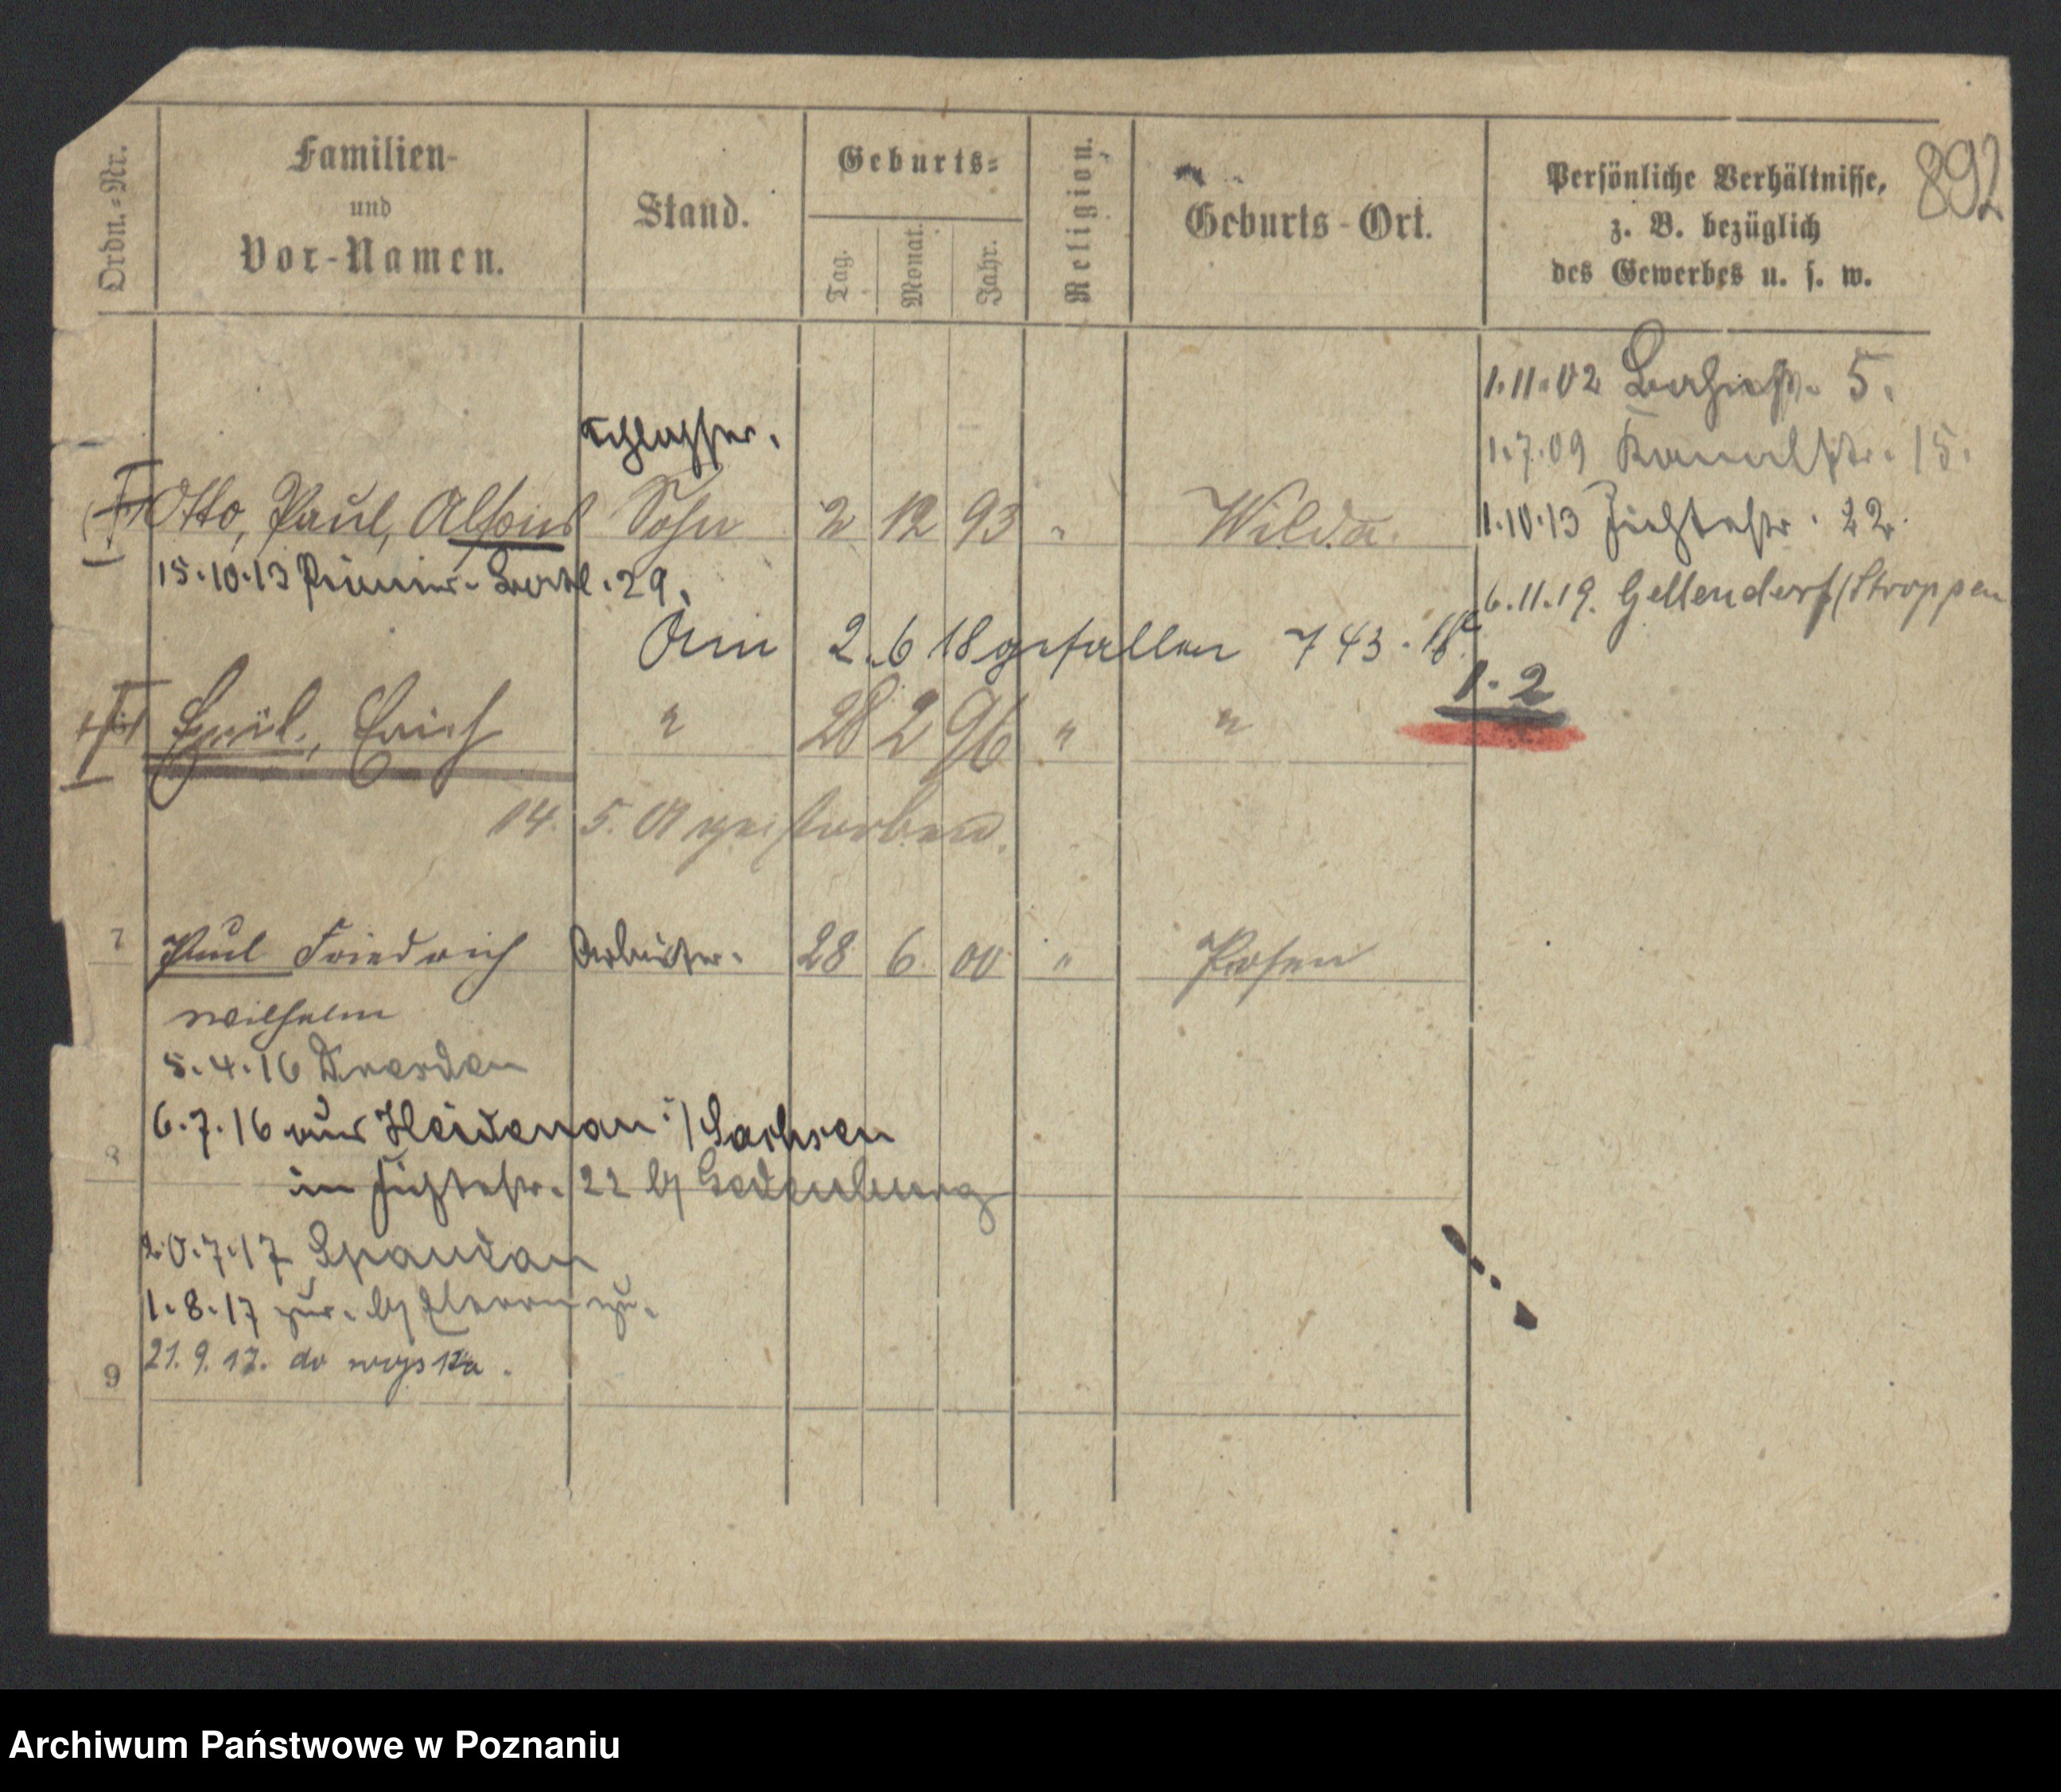 892
Ordn.-Nr.
Familien-
und
Vor-Namen.
Stand.
Geburts-
Tag.
Monat.
Jahr.
Religion.
Geburts-Ort.
Persönliche Verhältnisse,
z. B. bezüglich
des Gewerbes u. s. w.
1.11.02 5.
1.7.09 Kanalstr. 15.
1.10.13 Fichtestr. 22.
6.11.19. Gellendorf/Stroppen
Schlosser.
Otto, Paul, Alfons Sohn 2 12 93 " Wilda
15.10.13 Pionier-Batl. 29.
Am 2.6 18 gefallen 743.18
1.2
Emil, Erich " 28 2 96 " "
14. 5. 01 gestorben.
7 Paul Friedrich Arbeiter. 28 6 00 " Posen
Wilhelm
5.4.16 Dresden
6.7.16 aus Heidenau i/Sachsen
8
in Fichtestr. 22 by
20.7.17 Spandau
1.8.17 zur. by Eltern zu.
9 21.9.17. do
Archiwum Państwowe w Poznaniu